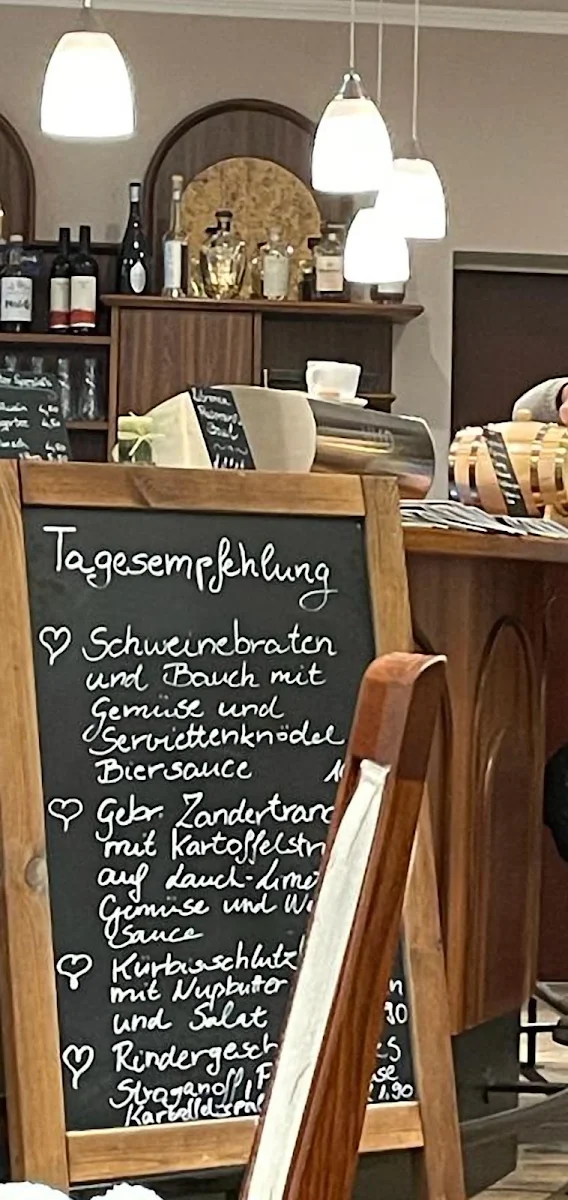 Tagesempfehlung
Schweinebraten
und Bauch mit
Gemüse und
Serviettenknödel
Biersauce
Gebr. Zandertranc
mit Kartoffelstr
auf Lauch-Lime
Gemüse und We
Sauce
Kürbisschlutz
mit Nußbutter
und Salat 90
Rindergesch es
Stroganoff
1,90